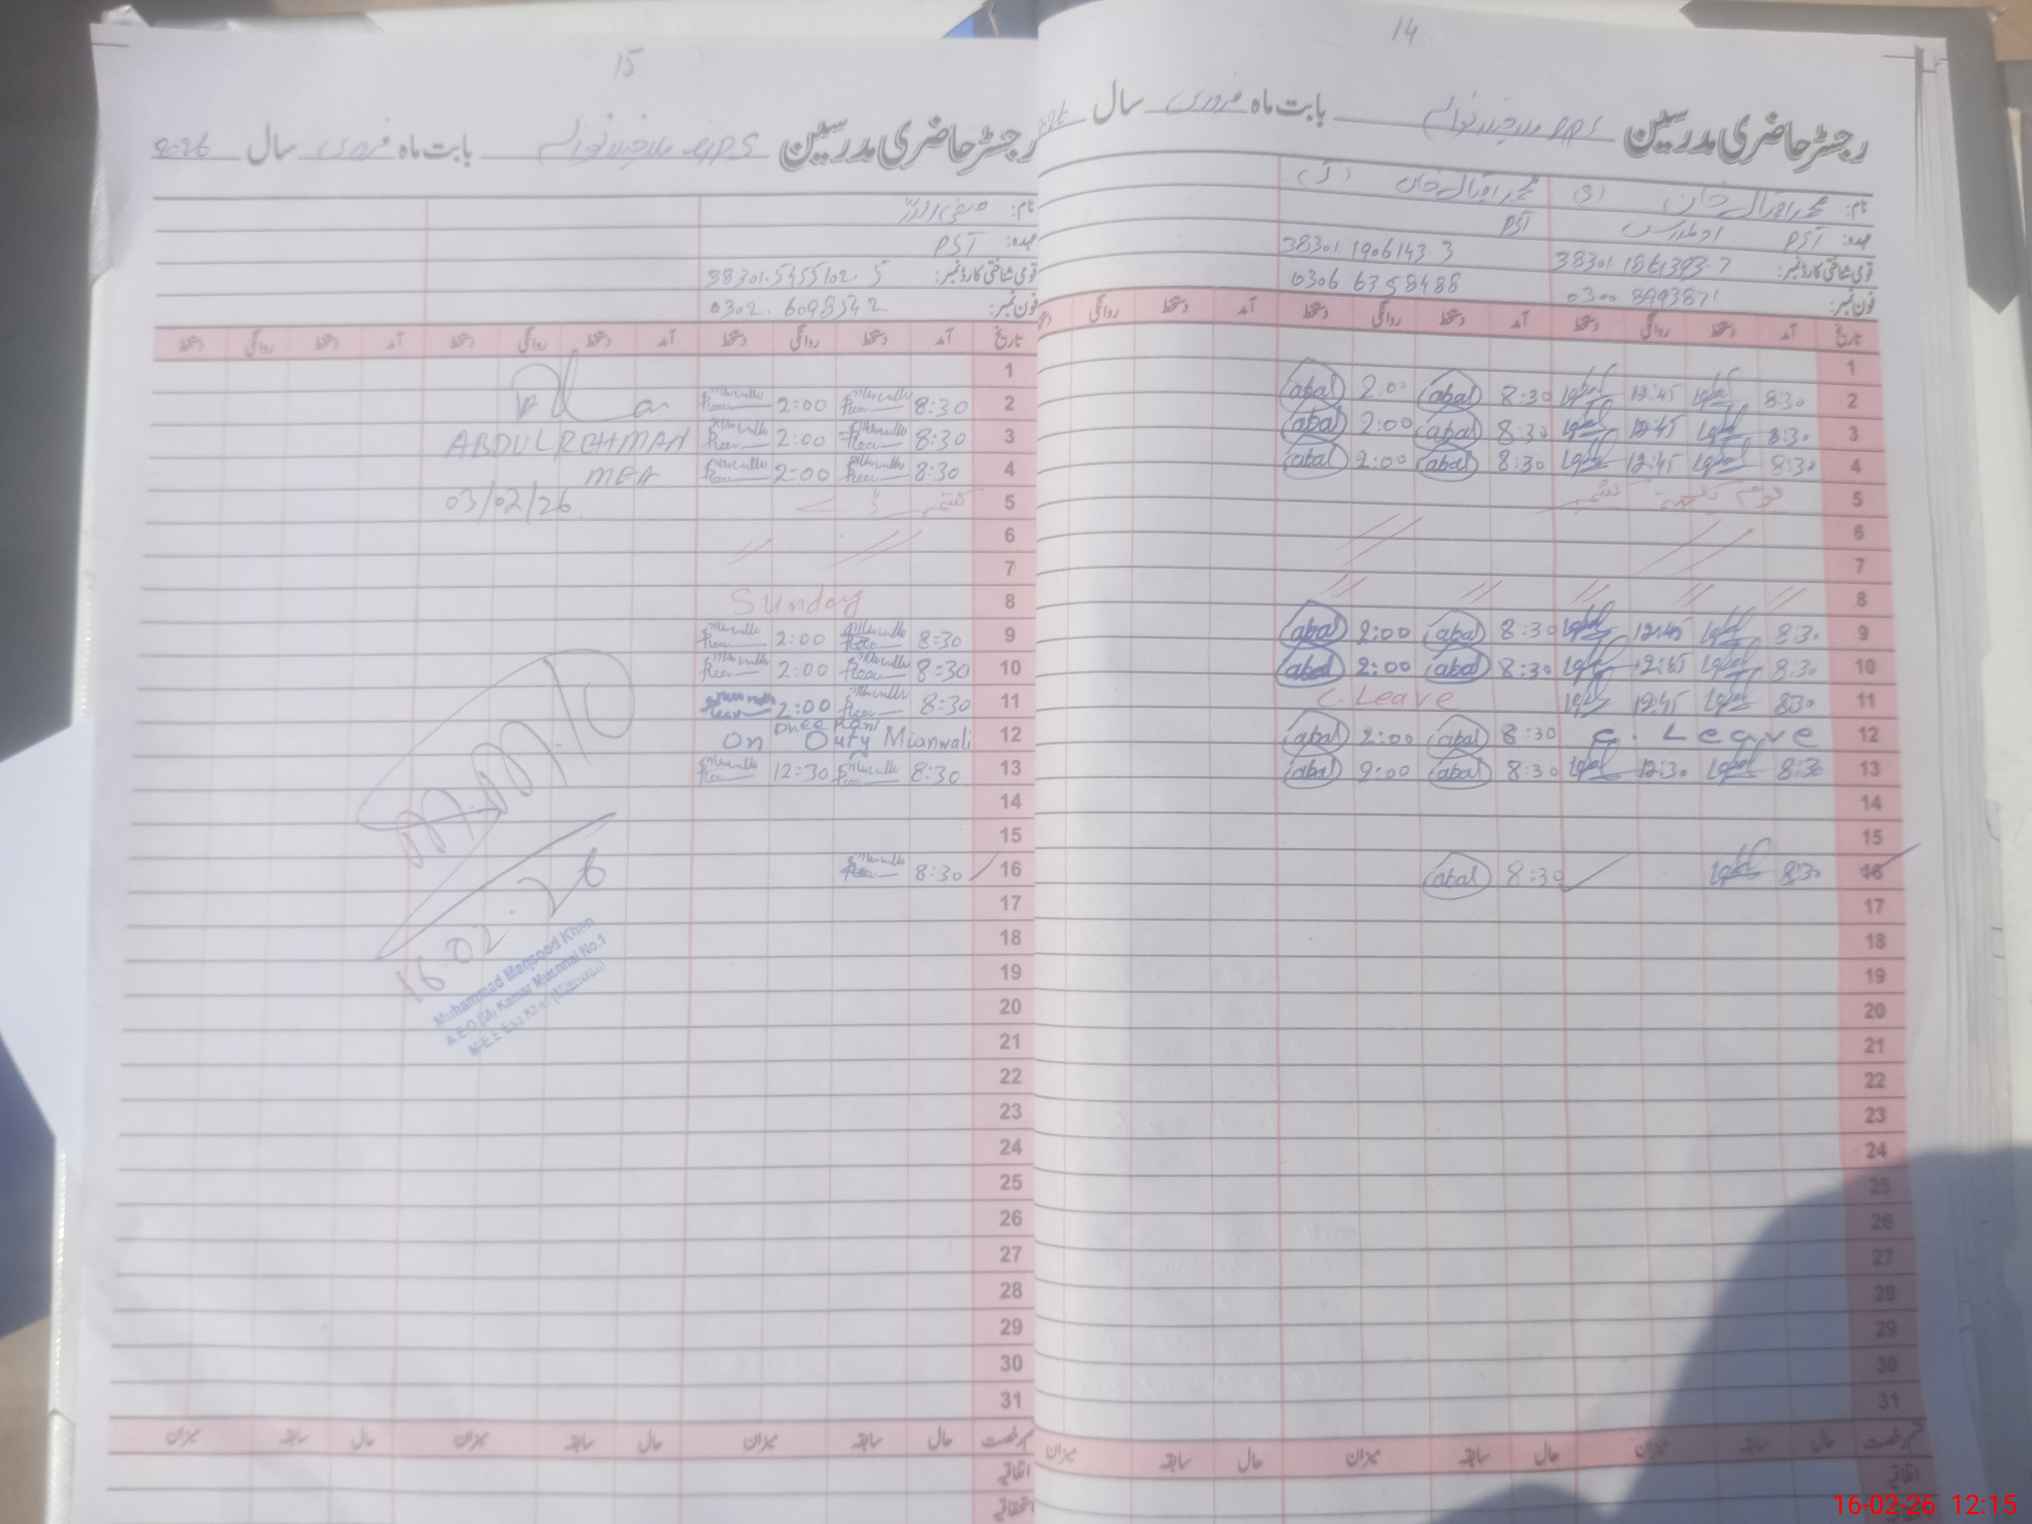 14
رجسٹر حاضری مدرسین GPS بابت ماہ فروری سال
نام: محمد اقبال خان محمد اقبال خان
عہدہ: PST PST
قومی شناختی کارڈ نمبر: 38301 1861393-7 38301 1906143 3
فون نمبر: 0300 8993871 0306 6358488
تاریخ آمد دستخط روانگی دستخط آمد دستخط روانگی دستخط آمد دستخط روانگی
1
2 8:30 Iqbal 12:45 Iqbal 8:30 iqbal 2:00 iqbal
3 8:30 Iqbal 12:45 Iqbal 8:30 iqbal 2:00 iqbal
4 8:30 Iqbal 12:45 Iqbal 8:30 iqbal 2:00 iqbal
5 یوم کشمیر
6
7
8
9 8:30 Iqbal 12:45 Iqbal 8:30 iqbal 2:00 iqbal
10 8:30 Iqbal 12:45 Iqbal 8:30 iqbal 2:00 iqbal
11 830 Iqbal 12:45 Iqbal C. Leave
12 C. Leave 8:30 iqbal 2:00 iqbal
13 8:30 Iqbal 12:30 Iqbal 8:30 iqbal 2:00 iqbal
14
15
16 8:30 Iqbal 8:30 iqbal
17
18
19
20
21
22
23
24
25
26
27
28
29
30
31
حال سابقہ میزان حال سابقہ میزان حال سابقہ میزان
اتفاقیہ
15
رجسٹر حاضری مدرسین GPS بابت ماہ فروری سال 2026
نام:
عہدہ: PST
قومی شناختی کارڈ نمبر: 38301.5455102.5
فون نمبر: 0302.6098542
تاریخ آمد دستخط روانگی دستخط آمد دستخط روانگی دستخط آمد دستخط روانگی دستخط
1
2 8:30 2:00
3 8:30 2:00
4 8:30 2:00
ABDUL REHMAN
MEA
03/02/26
5 کشمیر
6
7
8 Sunday
9 8:30 2:00
10 8:30 2:00
11 8:30 2:00
12 On Duty Mianwali
13 8:30 12:30
14
15
16 8:30
17
18
19
20
21
22
23
24
25
26
27
28
29
30
31
16.02.26
Muhammad Maqsood Khan
A.E.O (M) Kamar Mushani No.1
حال سابقہ میزان حال سابقہ میزان حال سابقہ میزان
اتفاقیہ
16-02-26 12:15